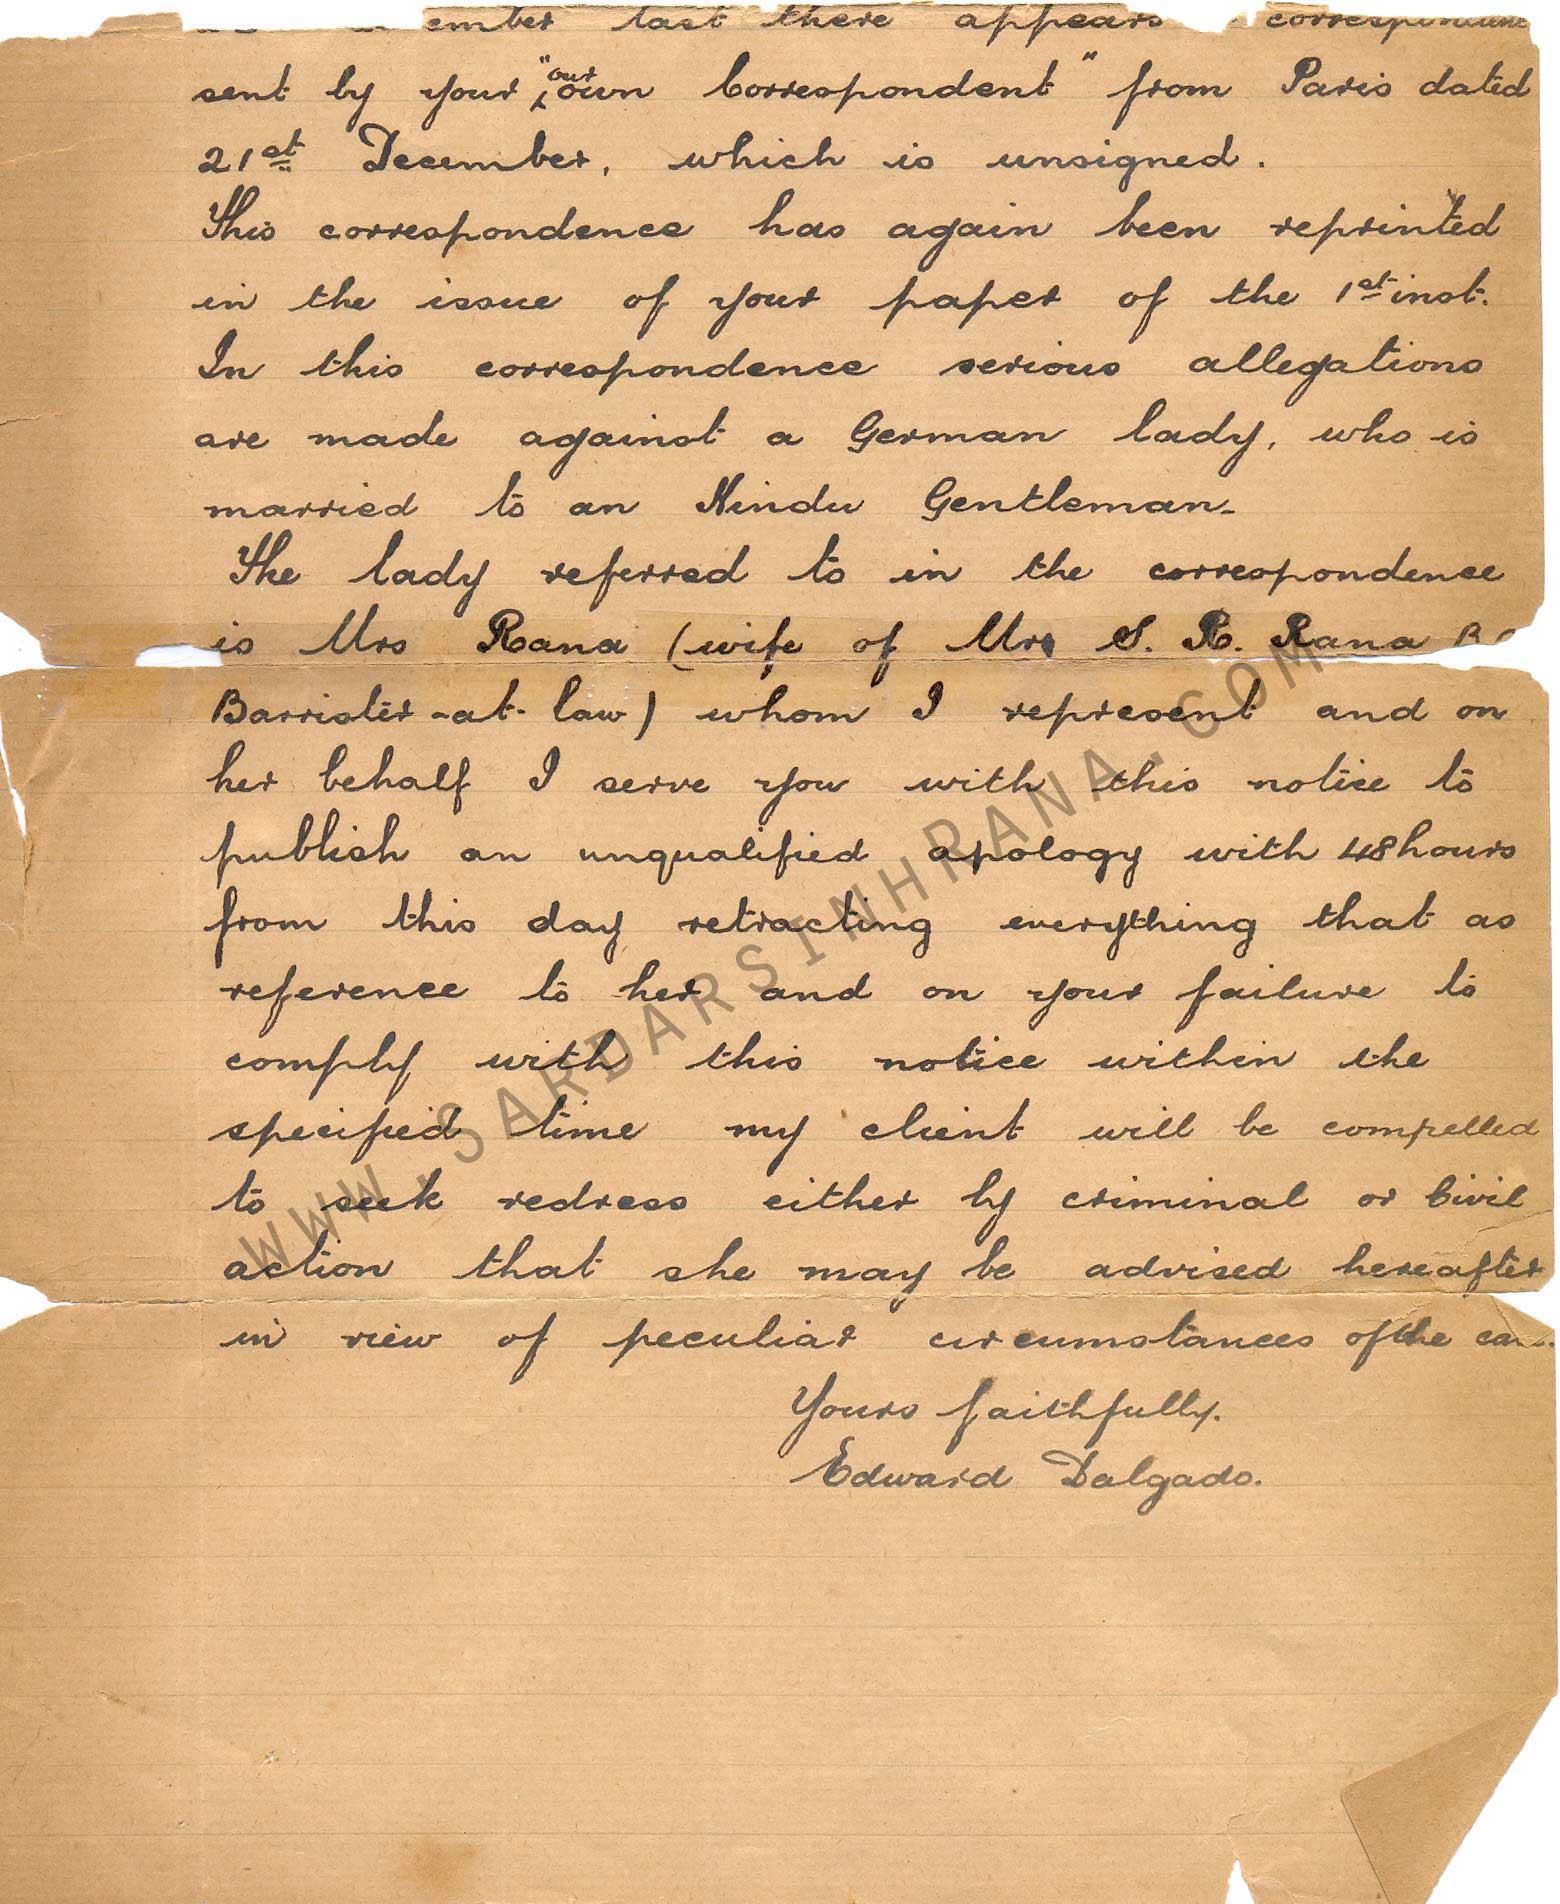 last there appears correspondence
sent by your "our own Correspondent" from Paris dated
21st December, which is unsigned.
This correspondence has again been reprinted
in the issue of your paper of the 1st inst.
In this correspondence serious allegations
are made against a German lady, who is
married to an Hindu Gentleman.
The lady referred to in the correspondence
is Mrs Rana (wife of Mr S. R. Rana
Barrister-at-law) whom I represent and on
her behalf I serve you with this notice to
publish an unqualified apology with 48 hours
from this day retracting everything that as
reference to her and on your failure to
comply with this notice within the
specified time my client will be compelled
to seek redress either by criminal or Civil
action that she may be advised hereafter
in view of peculiar circumstances of the
Yours faithfully.
Edward Dalgado.
WWW.SARDARSINHRANA.COM